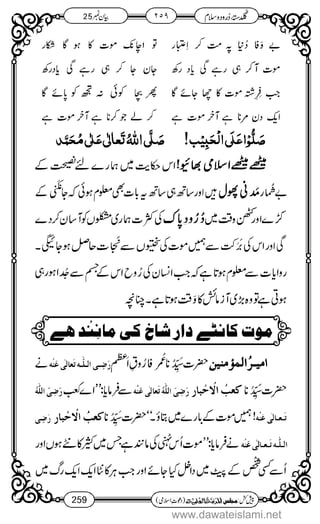 گلدستۂ درود و سلام ۲۵۹ بیان نمبر 25
بے وفا دُنیا پہ مت کر اعتبار تو اچانک موت کا ہو گا شکار
موت آکر ہی رہے گی یاد رکھ جان جا کر ہی رہے گی یاد رکھ
جب فرشتہ موت کا چھا جائے گا پھر بچا کوئی نہ تجھ کو پائے گا
ایک دن مرنا ہے آخر موت ہے کر لے جو کرنا ہے آخر موت ہے
صَلُّوْا عَلَی الْحَبِیْب! صَلَّی اللّٰہُ تَعَالٰی عَلٰی مُحَمَّد
میٹھے میٹھے اسلامی بھائیو! اس حکایت میں ہمارے لئے نصیحت کے
بے شمار مدنی پھول ہیں اور ساتھ ہی ساتھ یہ بات بھی معلوم ہوئی کہ جانکنی کے
کڑے اور کٹھن وقت میں دُرُودِ پاک کی کثرت ہماری مشکلوں کو آسان کر دے
گی اور اس کی برکت سے ہمیں موت کی سختیوں سے نجات حاصل ہو جائے گی۔
روایات سے معلوم ہوتا ہے کہ جب انسان کی روح اس کے جسم سے جُدا ہو رہی
ہوتی ہے تو وہ بڑی آزمائش کا وقت ہوتا ہے۔ چنانچہ
موت کانٹے دار شاخ کی مانند ہے
امیرُ المؤمنین حضرت سَیِّدُنا عمر فاروقِ اعظم رَضِیَ اللّٰہُ تَعَالٰی عَنْہُ نے
حضرت سَیِّدُنا کعبُ الْاَحبار رَضِیَ اللّٰہُ تَعَالٰی عَنْہُ سے فرمایا: ”اے کعب رَضِیَ اللّٰہُ
تَعَالٰی عَنْہُ! ہمیں موت کے بارے میں بتاؤ۔“ حضرت سَیِّدُنا کعبُ الْاَحبار رَضِیَ
اللّٰہُ تَعَالٰی عَنْہُ نے فرمایا: ”موت اُس ٹہنی کی مانند ہے جس میں کثیر کانٹے ہوں اور
اُسے کسی شخص کے پیٹ میں داخل کیا جائے اور جب ہر کانٹا ایک ایک رَگ میں
259
www.dawateislami.net